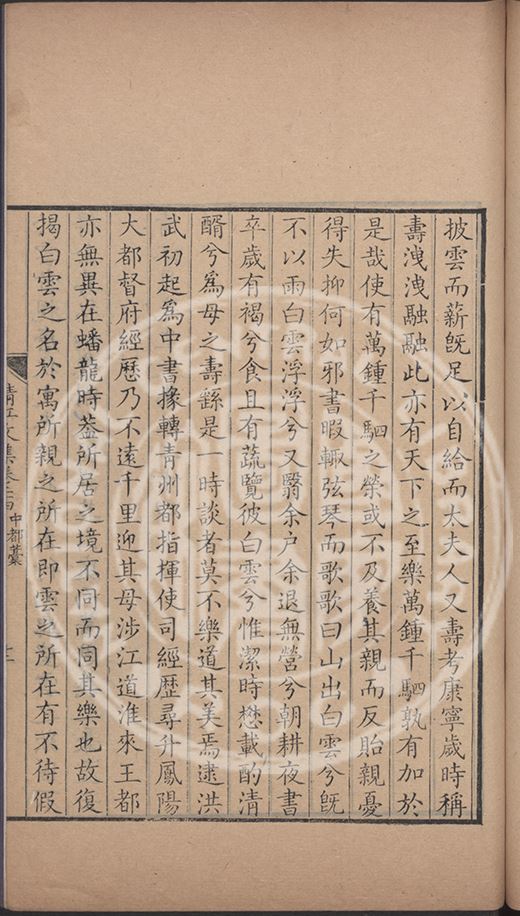 披雲而薪旣足以自給而太夫人又壽考康寧歲時稱
壽洩洩融融此亦有天下之至樂萬鍾千駟孰有加於
是哉使有萬鍾千駟之榮或不及養其親而反貽親憂
得失抑何如邪書暇輒弦琴而歌歌曰山出白雲兮旣
不以雨白雲浮浮兮又翳余户余退無營兮朝耕夜書
卒歲有褐兮食且有蔬覽彼白雲兮惟潔時懋載酌清
醑兮爲母之壽繇是一時談者莫不樂道其美焉逮洪
武初起爲中書掾轉青州都指揮使司經歷尋升鳳陽
大都督府經歷乃不遠千里迎其母涉江道淮來王都
亦無異在蟠龍時葢所居之境不同而同其樂也故復
揭白雲之名於寓所親之所在即雲之所在有不待假
清江文集卷之 中都藁